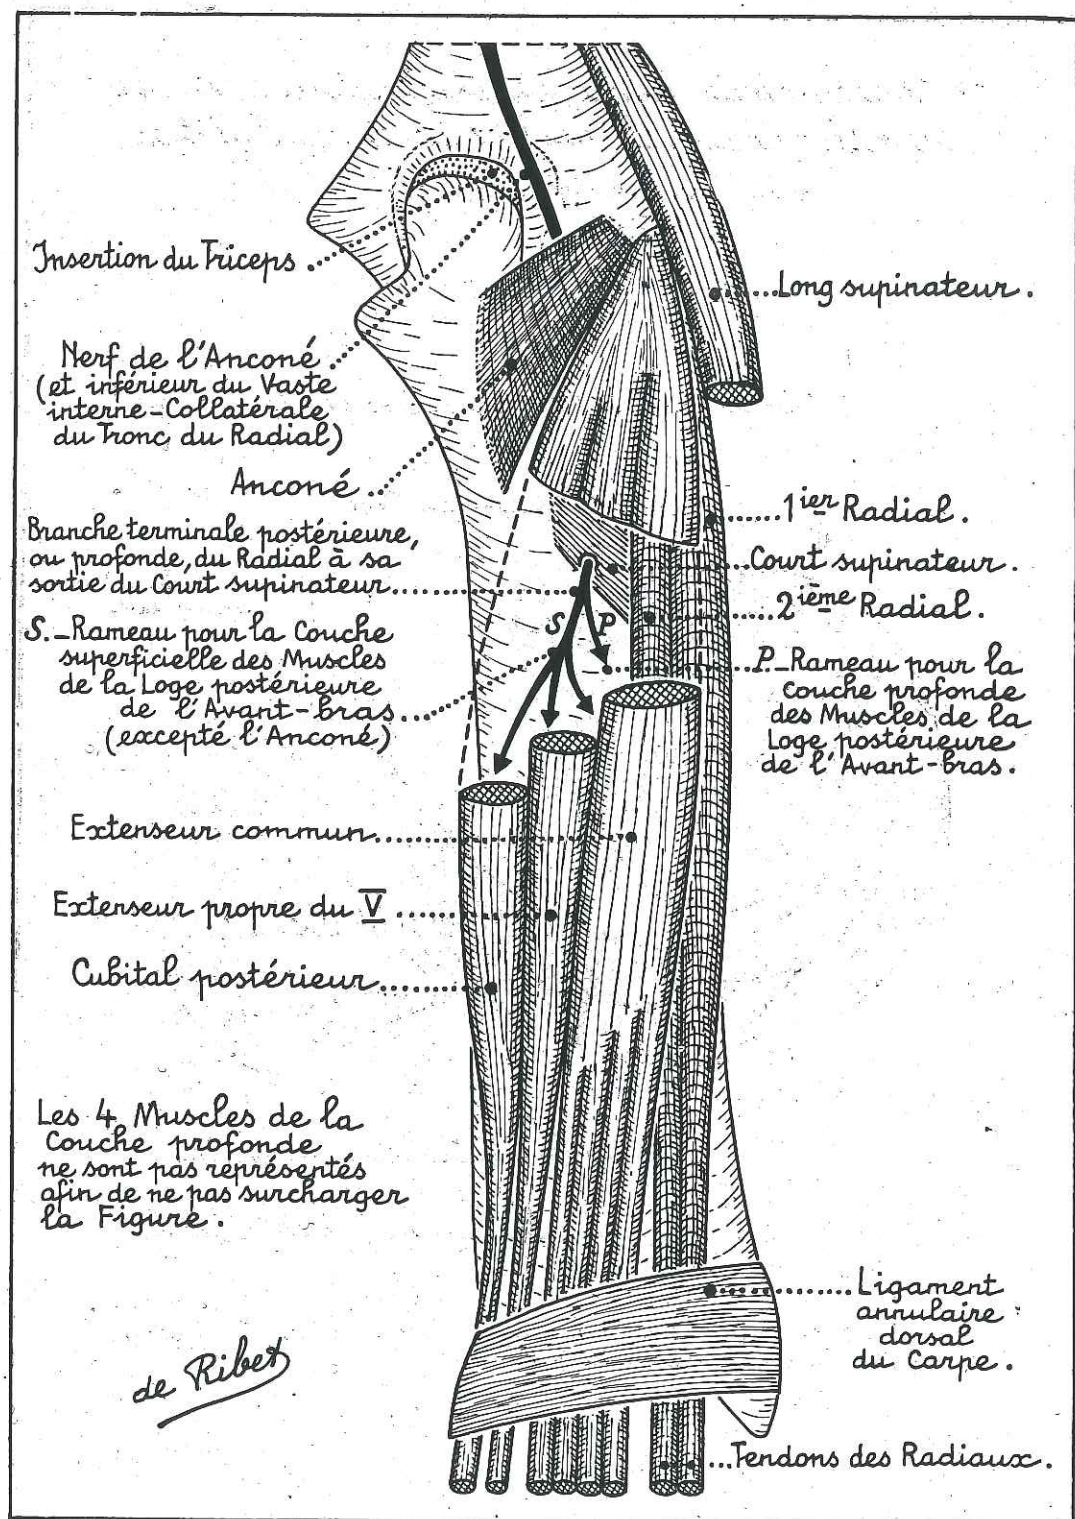 Insertion du Triceps
Nerf de l'Anconé
(et inférieur du Vaste
interne-Collatérale
du Tronc du Radial)
Anconé
Branche terminale postérieure,
ou profonde, du Radial à sa
sortie du Court supinateur
S._Rameau pour la Couche
superficielle des Muscles
de la Loge postérieure
de l'Avant-bras
(excepté l'Anconé)
Extenseur commun
Extenseur propre du V
Cubital postérieur
Les 4 Muscles de la
Couche profonde
ne sont pas représentés
afin de ne pas surcharger
la Figure.
de Ribet
S
P
Long supinateur.
1ier Radial.
Court supinateur.
2ième Radial.
P._Rameau pour la
couche profonde
des Muscles de la
Loge postérieure
de l'Avant-bras.
Ligament
annulaire
dorsal
du Carpe.
Tendons des Radiaux.